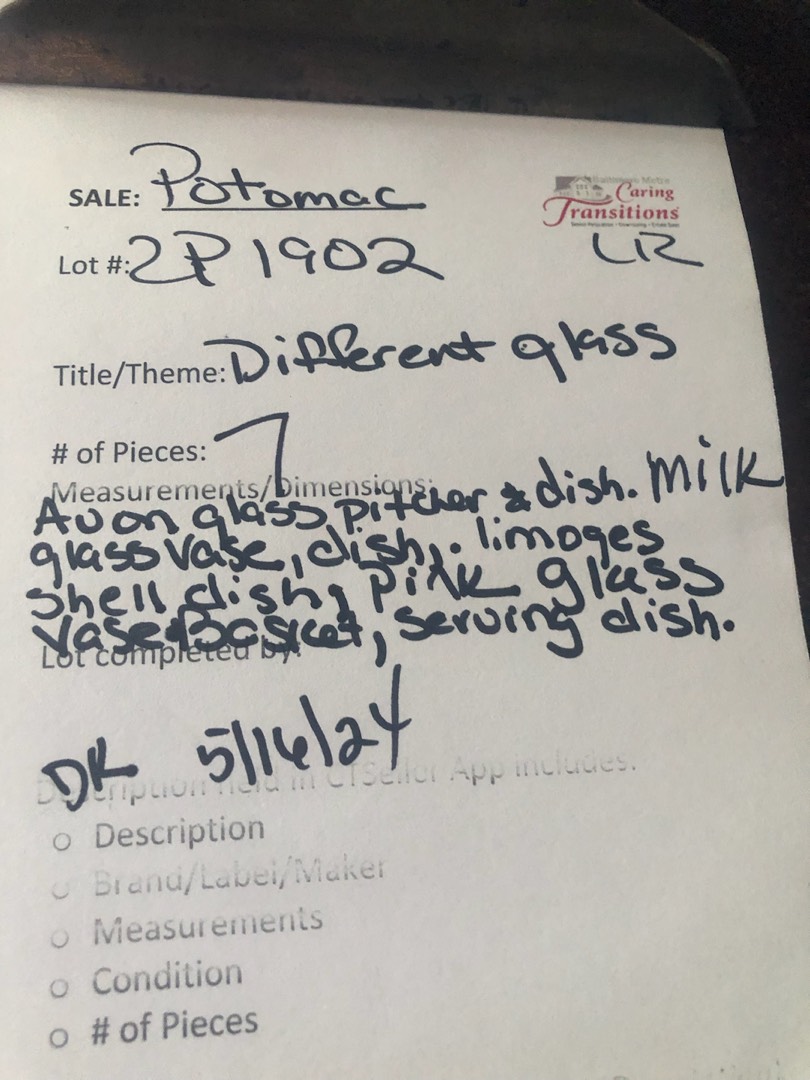 SALE: Potomac
Caring
Transitions
Lot #: 2P 1902
LR
Title/Theme: Different glass
# of Pieces: 7
Measurements/Dimensions:
Avon glass pitcher & dish. Milk
glass vase, dish,. limoges
shell dish, Pink glass
vase & Basket, serving dish.
Lot completed by:
DK 5/16/24
Description field in CTSeller App includes:
o Description
o Brand/Label/Maker
o Measurements
o Condition
o # of Pieces